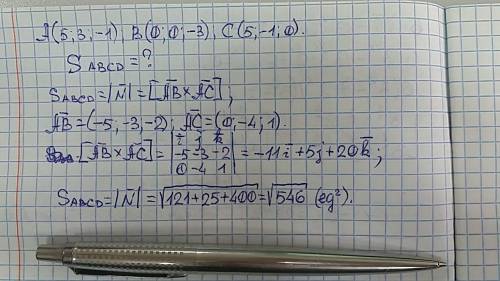 A(5; 3; -1); B(0; 0; -3); C(5; -1; 0).
S ABCD = ?
S ABCD = |N̄| = [AB̄ × AC̄];
AB̄ = (-5, -3, -2); AC̄ = (0; -4; 1).
[AB̄ × AC̄] = | ī j̄ k̄ |
| -5 -3 -2 | = -11ī + 5j̄ + 20k̄;
| 0 -4 1 |
S ABCD = |N̄| = √121+25+400 = √546 (eg²).